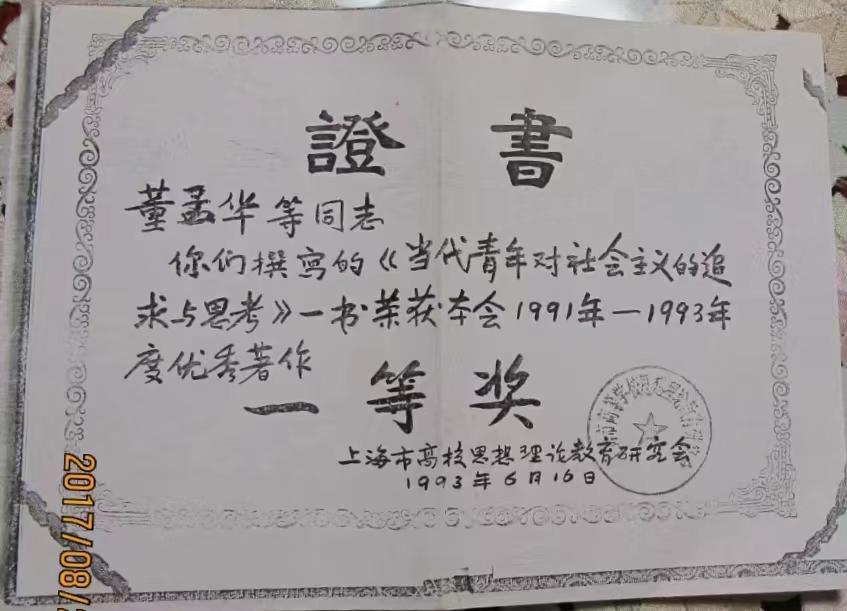 證書
董孟华等同志
你们撰写的《当代青年对社会主义的追
求与思考》一书荣获本会1991年—1993年
度优秀著作
一等奖
上海市高校思想理论教育研究会
1993年6月16日
2017/08/